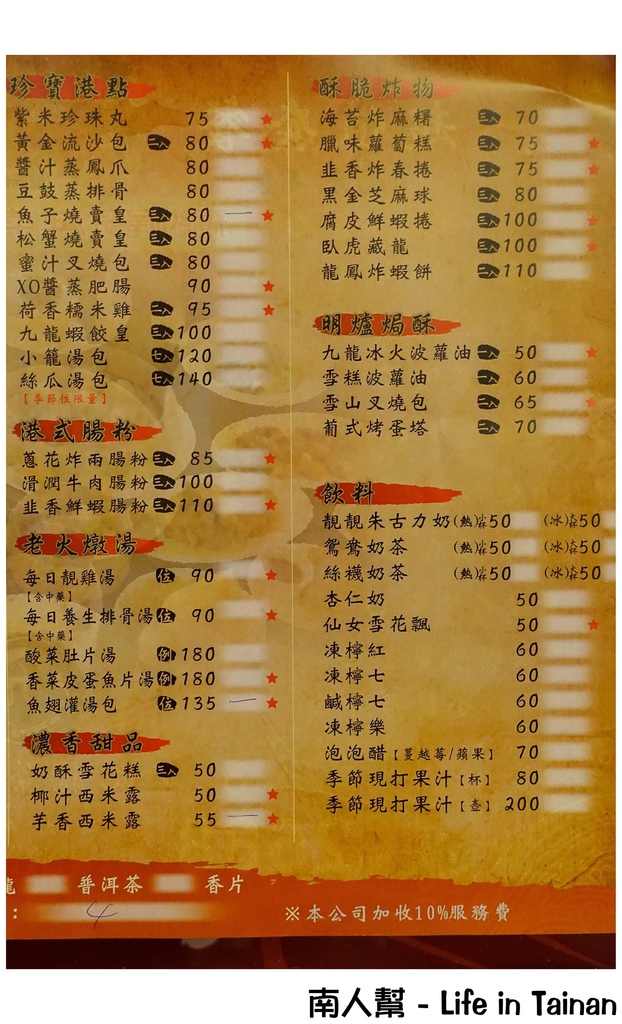 珍寶港點
紫米珍珠丸 75
黃金流沙包 三入 80
醬汁蒸鳳爪 80
豆鼓蒸排骨 80
魚子燒賣皇 三入 80
松蟹燒賣皇 三入 80
蜜汁叉燒包 三入 80
XO醬蒸肥腸 90
荷香糯米雞 二入 95
九龍蝦餃皇 三入 100
小籠湯包 七入 120
絲瓜湯包 七入 140
【季節性限量】
港式腸粉
蔥花炸兩腸粉 三入 85
滑潤牛肉腸粉 三入 100
韭香鮮蝦腸粉 三入 110
老火燉湯
每日靚雞湯 位 90
【含中藥】
每日養生排骨湯 位 90
【含中藥】
酸菜肚片湯 例 180
香菜皮蛋魚片湯 例 180
魚翅灌湯包 位 135
濃香甜品
奶酥雪花糕 三入 50
椰汁西米露 50
芋香西米露 55
酥脆炸物
海苔炸麻糬 三入 70
臘味蘿蔔糕 三入 75
韭香炸春捲 三入 75
黑金芝麻球 三入 80
腐皮鮮蝦捲 三入 100
臥虎藏龍 三入 100
龍鳳炸蝦餅 三入 110
明爐焗酥
九龍冰火波蘿油 一入 50
雪糕波蘿油 一入 60
雪山叉燒包 二入 65
葡式烤蛋塔 二入 70
飲料
靚靚朱古力奶 (熱) 50 (冰) 50
鴛鴦奶茶 (熱) 50 (冰) 50
絲襪奶茶 (熱) 50 (冰) 50
杏仁奶 50
仙女雪花飄 50
凍檸紅 60
凍檸七 60
鹹檸七 60
凍檸樂 60
泡泡醋【蔓越莓/蘋果】 70
季節現打果汁【杯】 80
季節現打果汁【壺】 200
龍 普洱茶 香片
: 4
※本公司加收10%服務費
南人幫 - Life in Tainan